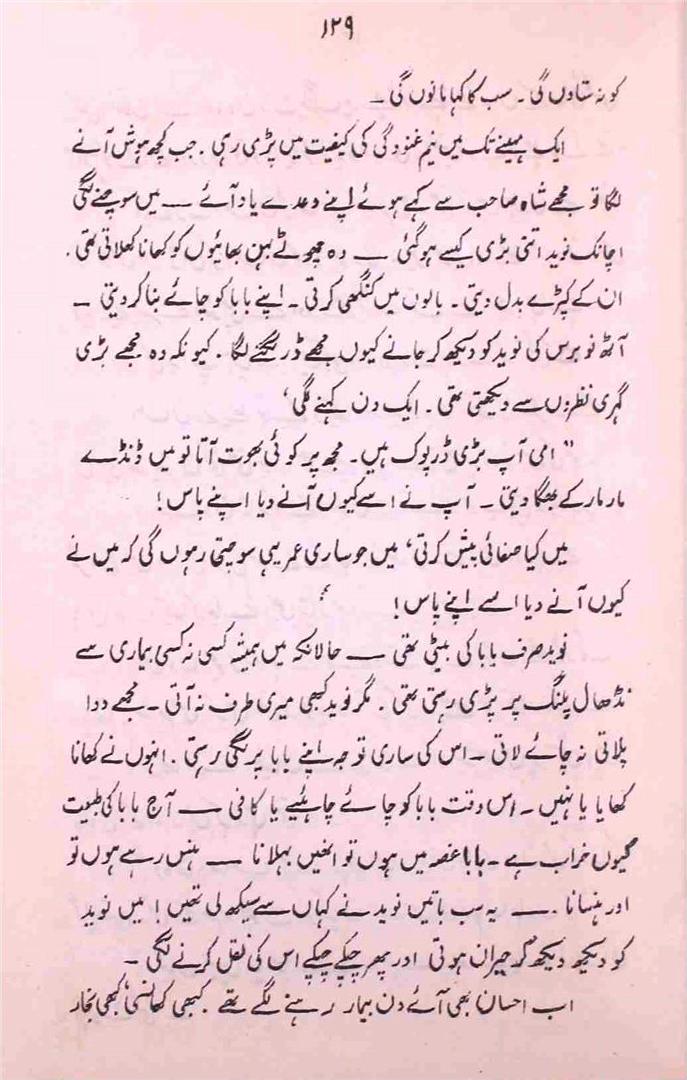 ۱۲۹
کو نہ ستاوں گی۔ سب کا کہا مانوں گی ۔
ایک مہینے تک میں نیم غنودگی کی کیفیت میں پڑی رہی ۔ جب کچھ ہوش آنے
لگا تو مجھے شاہ صاحب سے کہے ہوئے اپنے وعدے یاد آئے ـــ میں سوچنے لگی
اچانک نوید اتنی بڑی کیسے ہو گئی ـــ وہ چھوٹے بہن بھائیوں کو کھانا کھلاتی تھی .
ان کے کپڑے بدل دیتی ۔ بالوں میں کنگھی کرتی ۔ اپنے بابا کو چائے بنا کر دیتی ـ
آٹھ نو برس کی نوید کو دیکھ کر جانے کیوں مجھے ڈر لگنے لگا . کیونکہ وہ مجھے بڑی
گہری نظروں سے دیکھتی تھی ۔ ایک دن کہنے لگی‘
” امی آپ بڑی ڈرپوک ہیں۔ مجھ پر کوئی بھوت آتا تو میں ڈنڈے
مار مار کے بھگا دیتی ۔ آپ نے اسے کیوں آنے دیا اپنے پاس !
میں کیا صفائی پیش کرتی‘ میں جو ساری عمر یہی سوچتی رہوں گی کہ میں نے
کیوں آنے دیا اسے اپنے پاس !
نوید صرف بابا کی بیٹی تھی ـــ حالانکہ میں ہمیشہ کسی نہ کسی بیماری سے
نڈھال پلنگ پر پڑی رہتی تھی . مگر نوید کبھی میری طرف نہ آتی ۔ مجھے دوا
پلاتی نہ چائے لاتی ۔ اس کی ساری توجہ اپنے بابا پر لگی رہتی . انہوں نے کھانا
کھایا یا نہیں ۔ اس وقت بابا کو چائے چاہئیے یا کافی ـــ آج بابا کی طبیعت
کیوں خراب ہے ۔ بابا غصہ میں ہوں تو انھیں بہلانا ـــ ہنس رہے ہوں تو
اور ہنسانا . ـــ یہ سب باتیں نوید نے کہاں سے سیکھ لی تھیں ! میں نوید
کو دیکھ دیکھ کر حیران ہوتی اور پھر چپکے چپکے اس کی نقل کرنے لگی ۔
اب احسان بھی آئے دن بیمار رہنے لگے تھے . کبھی کھانسی‘ کبھی بخار